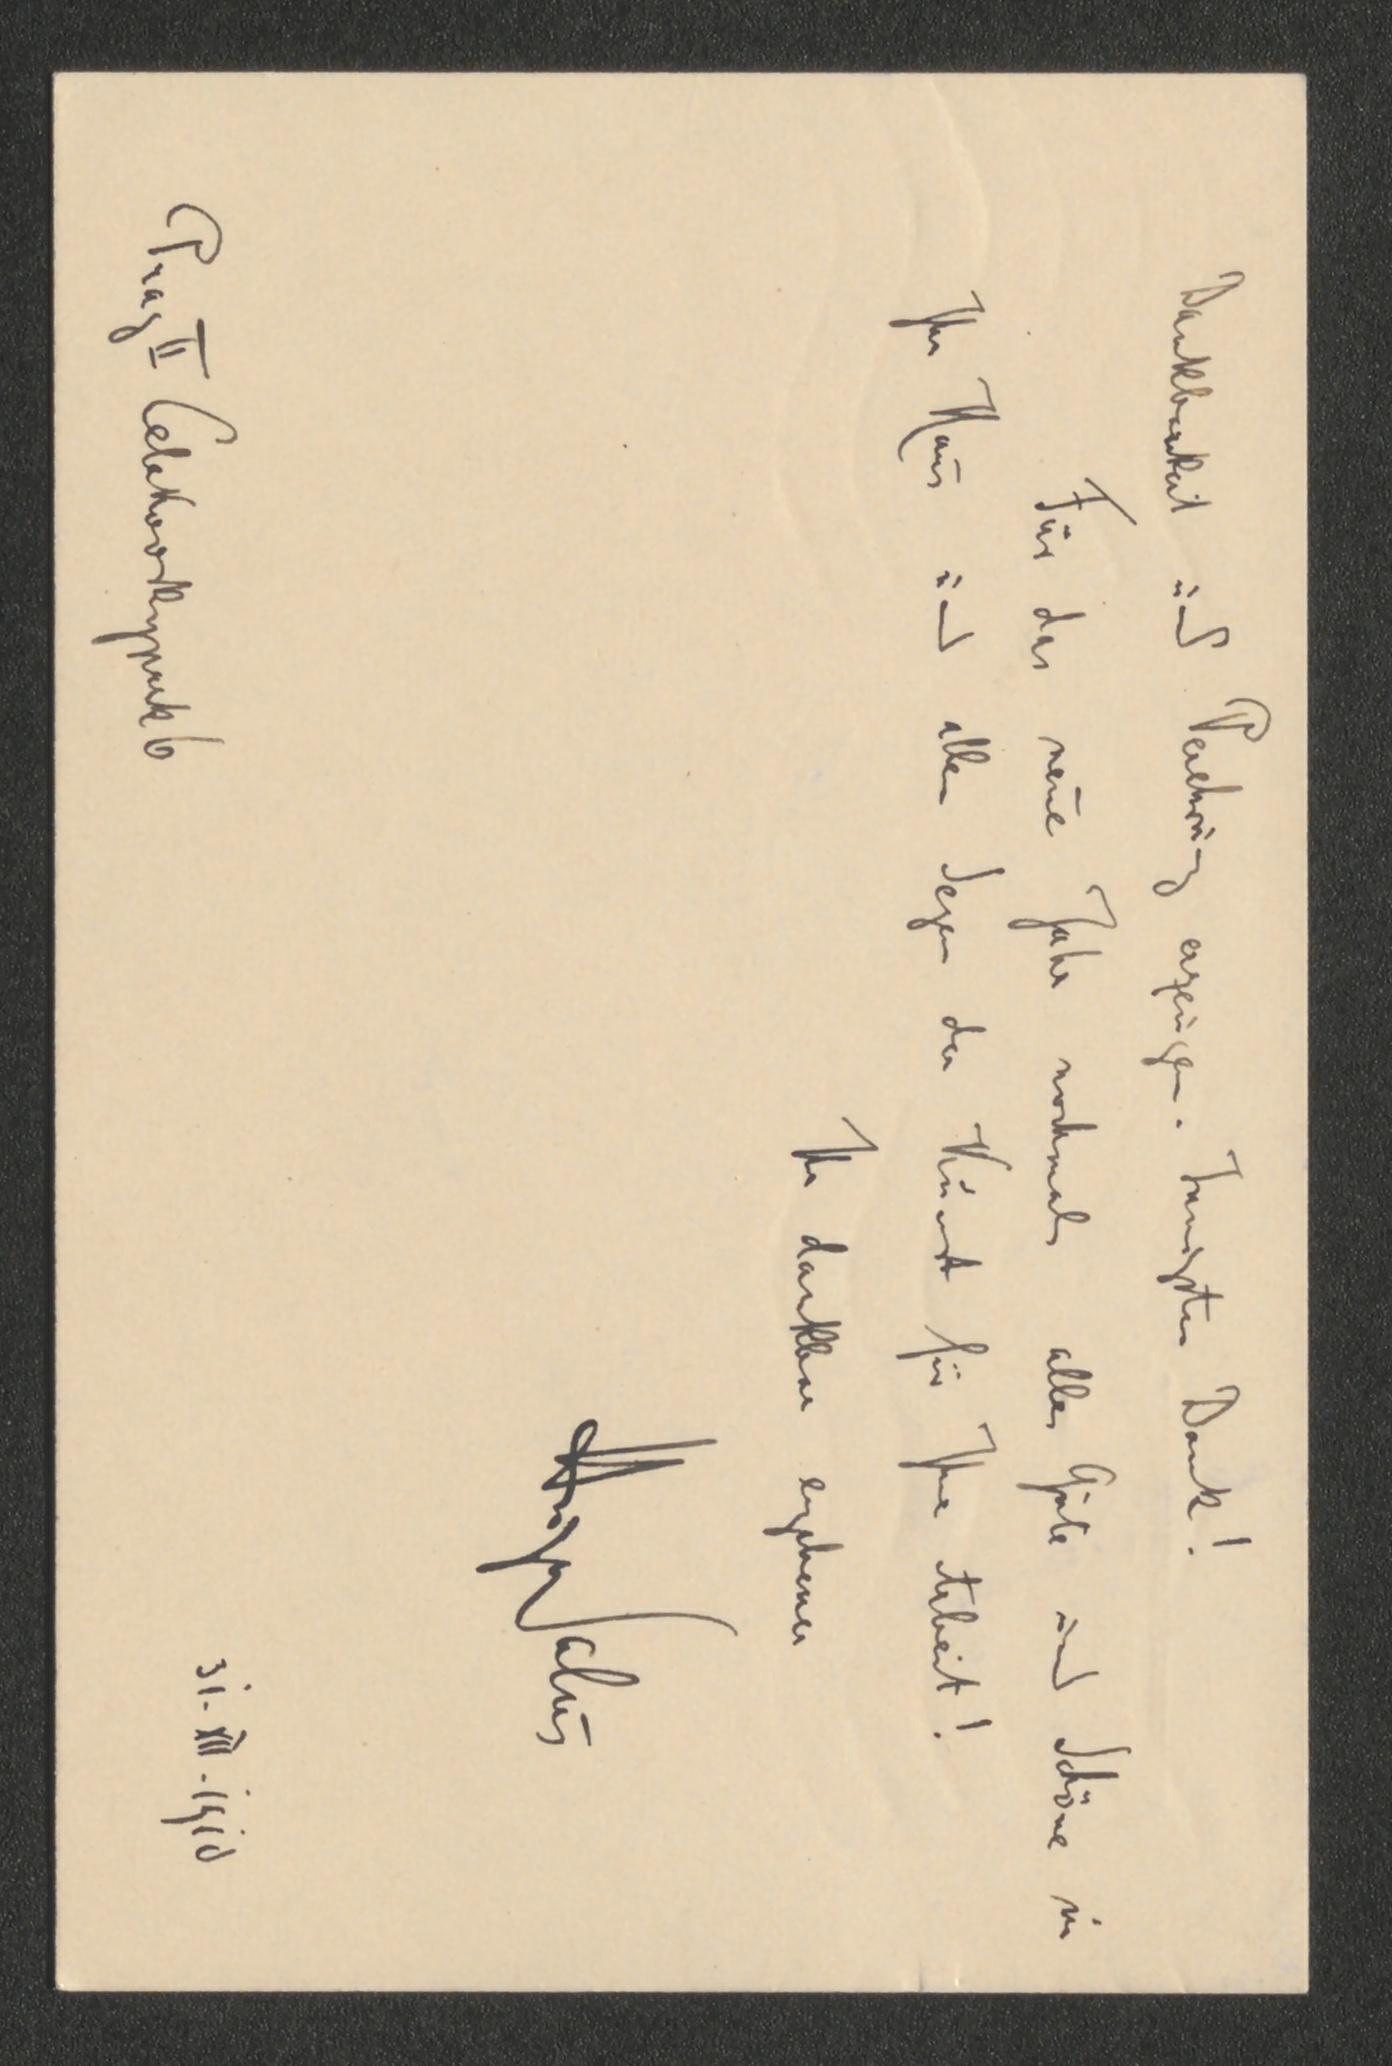 Dankbarkeit und Verehrung erzeigen. Innigsten Dank!
Für das neue Jahr nochmals alles Gute und Schöne in
Ihr Haus und allen Segen der Kunst für Ihre Arbeit!
Ihr dankbar ergebener
Hugo Salus
Prag II Celakovskypark 6
31. XII. 1910